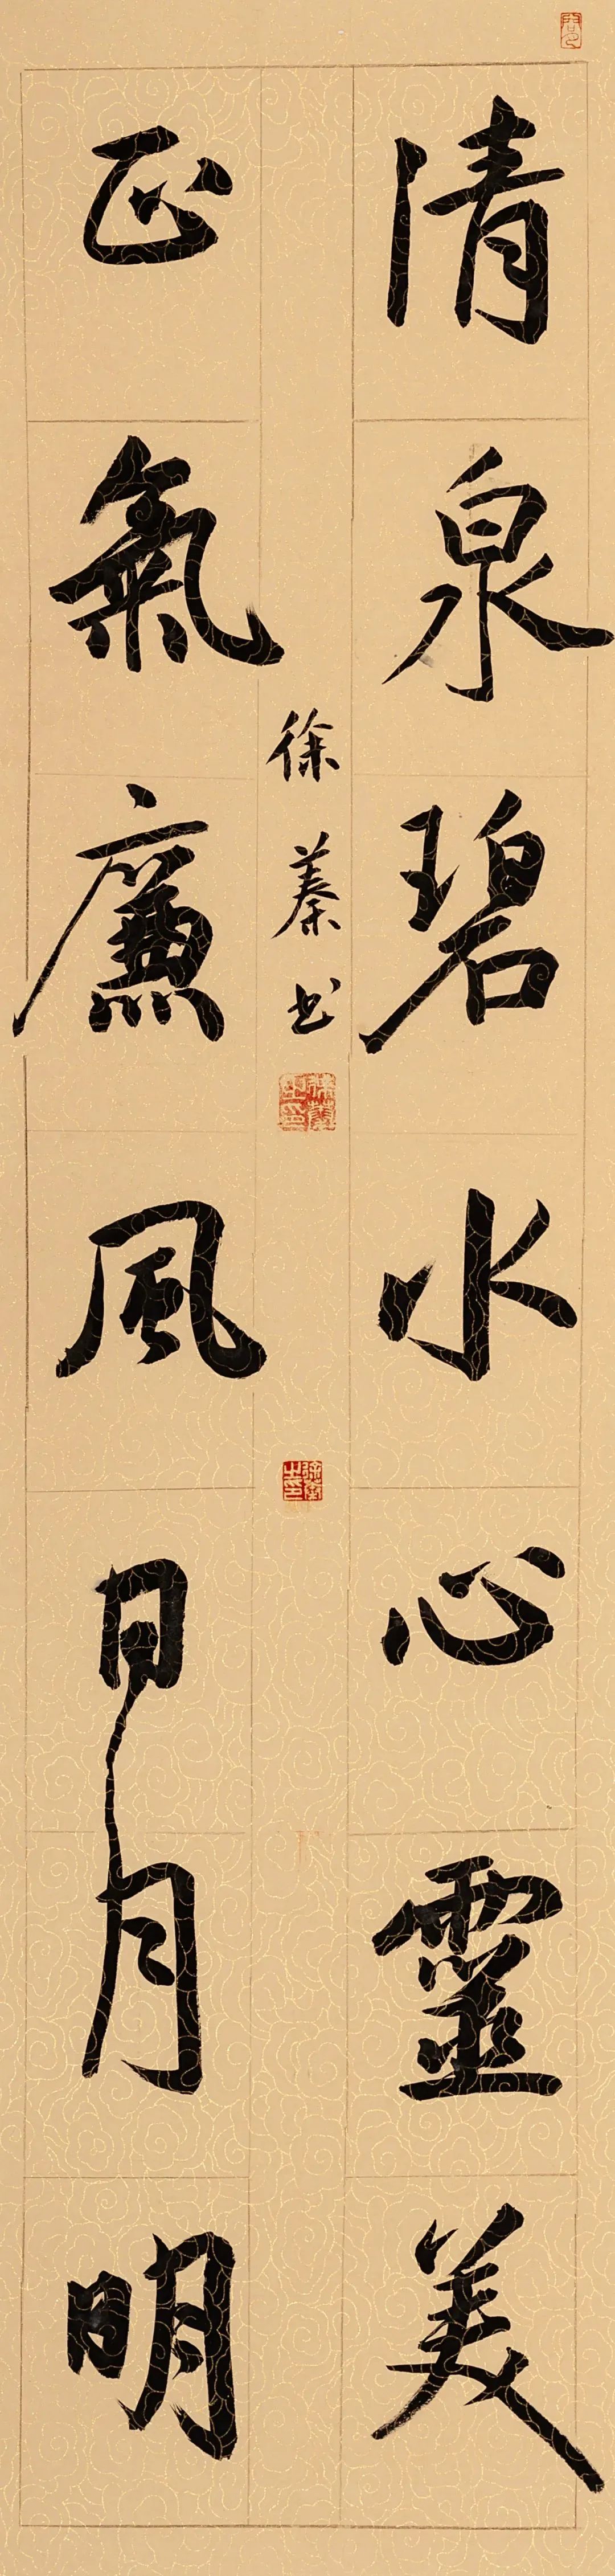 清泉碧水心靈美
正氣廉風日月明
徐蓁书